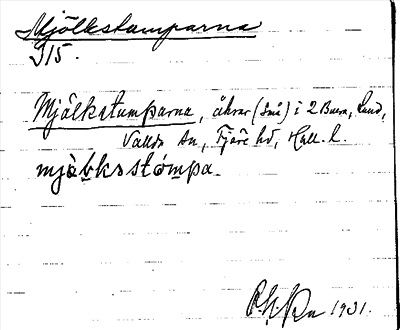 Mjölkstumparna
I15.
Mjölkstumparna, åkrar (små) i 2 Buera, Lund,
Vallda sn, Fjäre hd, Hall. l.
mjöłkstómpa.
1931.